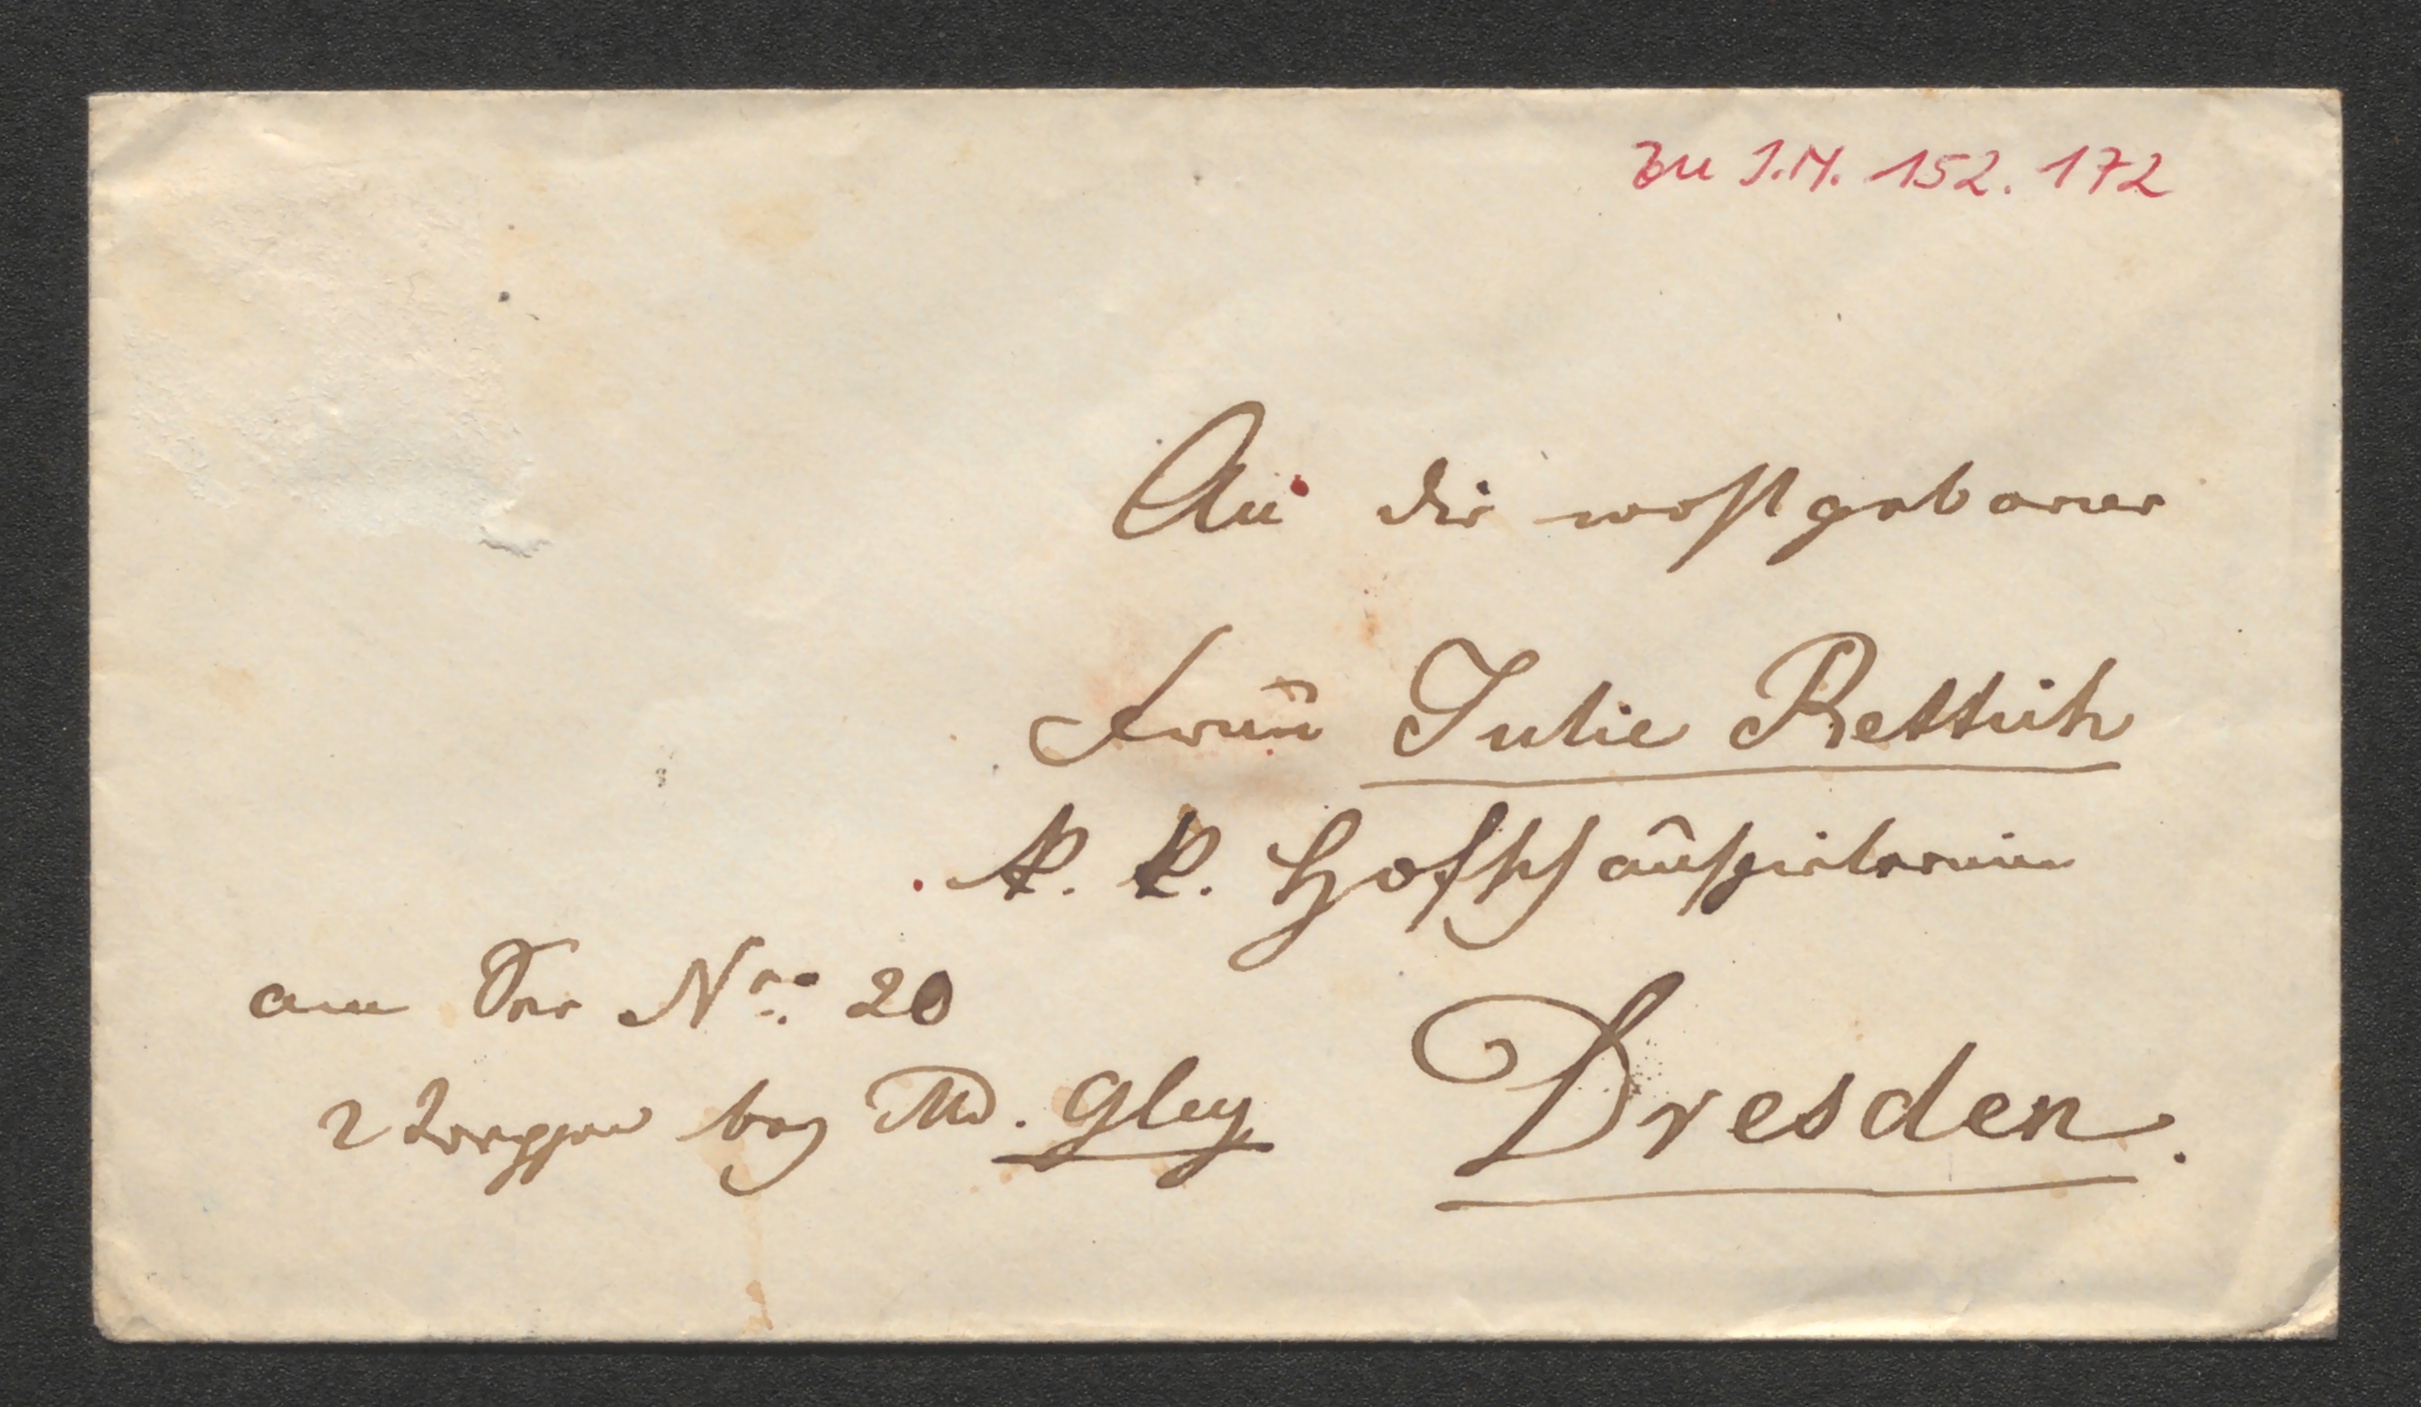 zu I.N. 152.172
An die wohlgeborne
Frau Julie Rettich
k. k. Hofschauspielerin
am See Nro. 20
2 Treppen bey Md. Gley
Dresden.